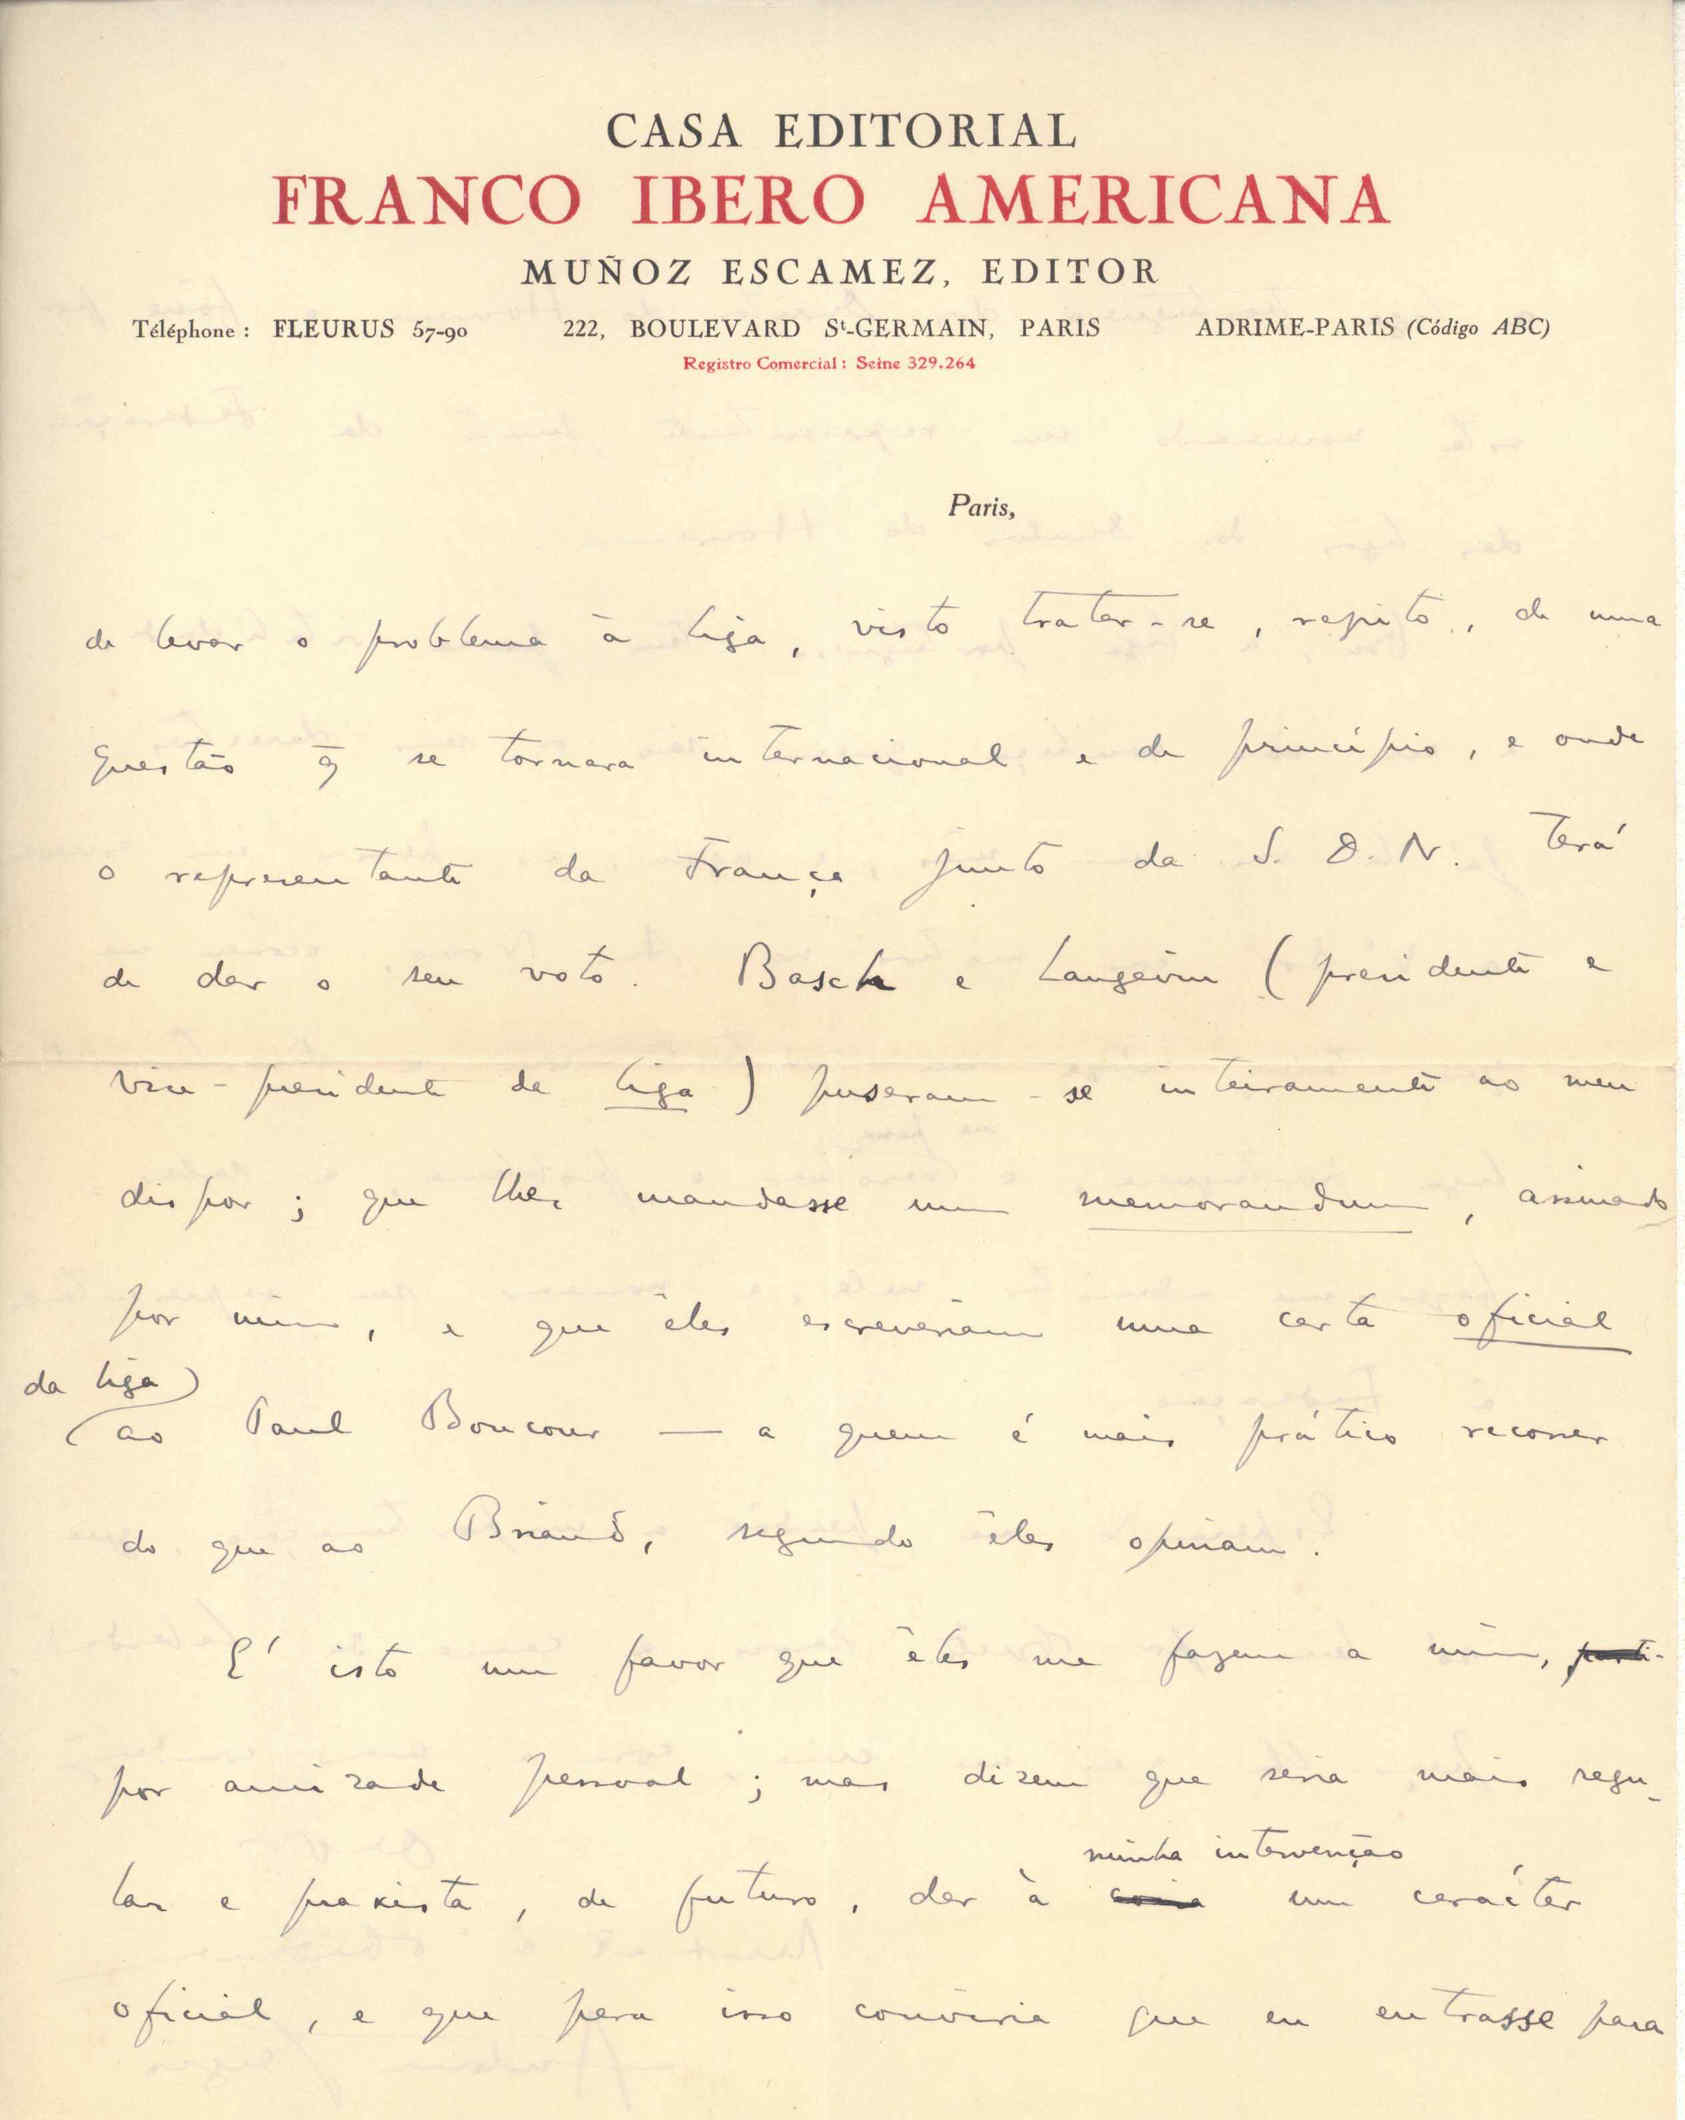 CASA EDITORIAL
FRANCO IBERO AMERICANA
MUÑOZ ESCAMEZ, EDITOR
Téléphone : FLEURUS 57-90 222, BOULEVARD St-GERMAIN, PARIS ADRIME-PARIS (Código ABC)
Registro Comercial : Seine 329.264
Paris,
de levar o problema à Liga, visto tratar-se, repito, de uma
questão q̄ se tornara internacional e de princípio, e onde
o representante da França junto da S. D. N. terá
de dar o seu voto. Basch e Langevin (presidente e
vice-presidente da Liga) puseram-se inteiramente ao meu
dispor; que lhes mandasse um memorandum, assinado
por mim, e que êles escreveriam uma carta oficial
da Liga)
(ao Paul Boncour — a quem é mais prático recorrer
do que ao Briand, segundo êles opinam.
E' isto um favor que êles me fazem a mim, parti-
por amizade pessoal; mas dizem que seria mais regu-
minha intervenção
lar e praxista, de futuro, dar à coisa um carácter
oficial, e que para isso conviria que eu entrasse para